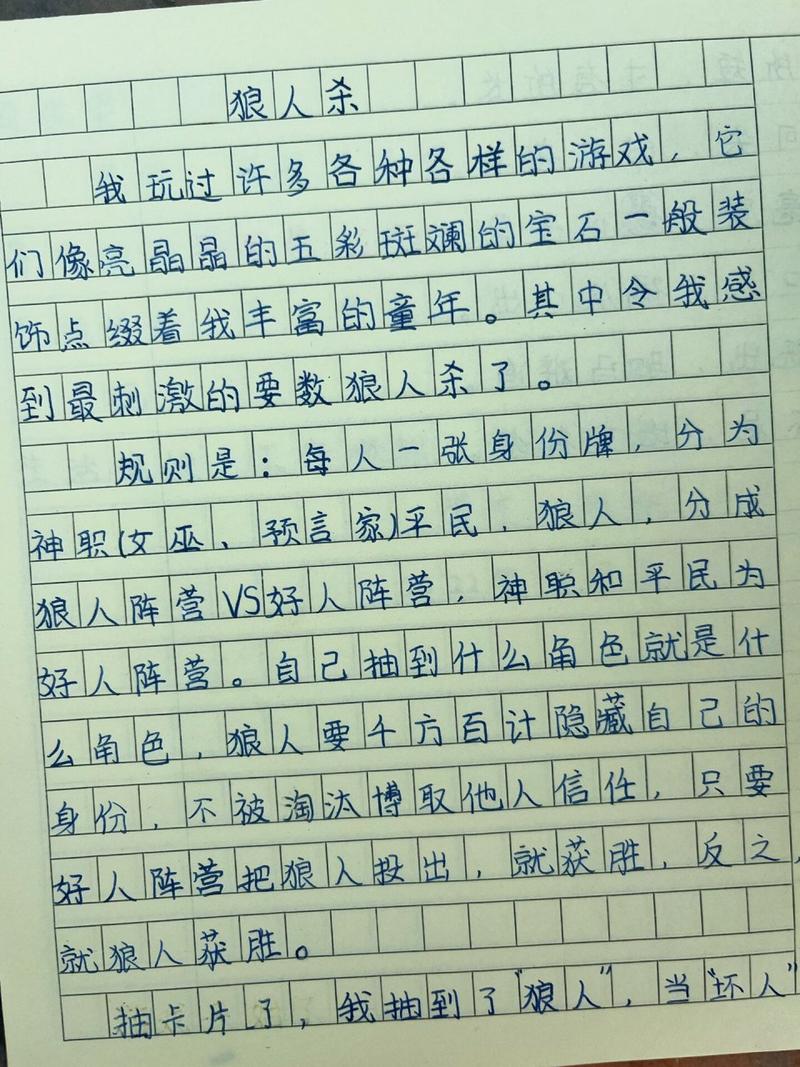 狼人杀
我玩过许多各种各样的游戏，它
们像亮晶晶的五彩斑斓的宝石一般装
饰点缀着我丰富的童年。其中令我感
到最刺激的要数狼人杀了。
规则是：每人一张身份牌，分为
神职(女巫、预言家)平民，狼人，分成
狼人阵营VS好人阵营，神职和平民为
好人阵营。自己抽到什么角色就是什
么角色，狼人要千方百计隐藏自己的
身份，不被淘汰博取他人信任，只要
好人阵营把狼人投出，就获胜，反之，
就狼人获胜。
抽卡片了，我抽到了“狼人”，当“坏人”